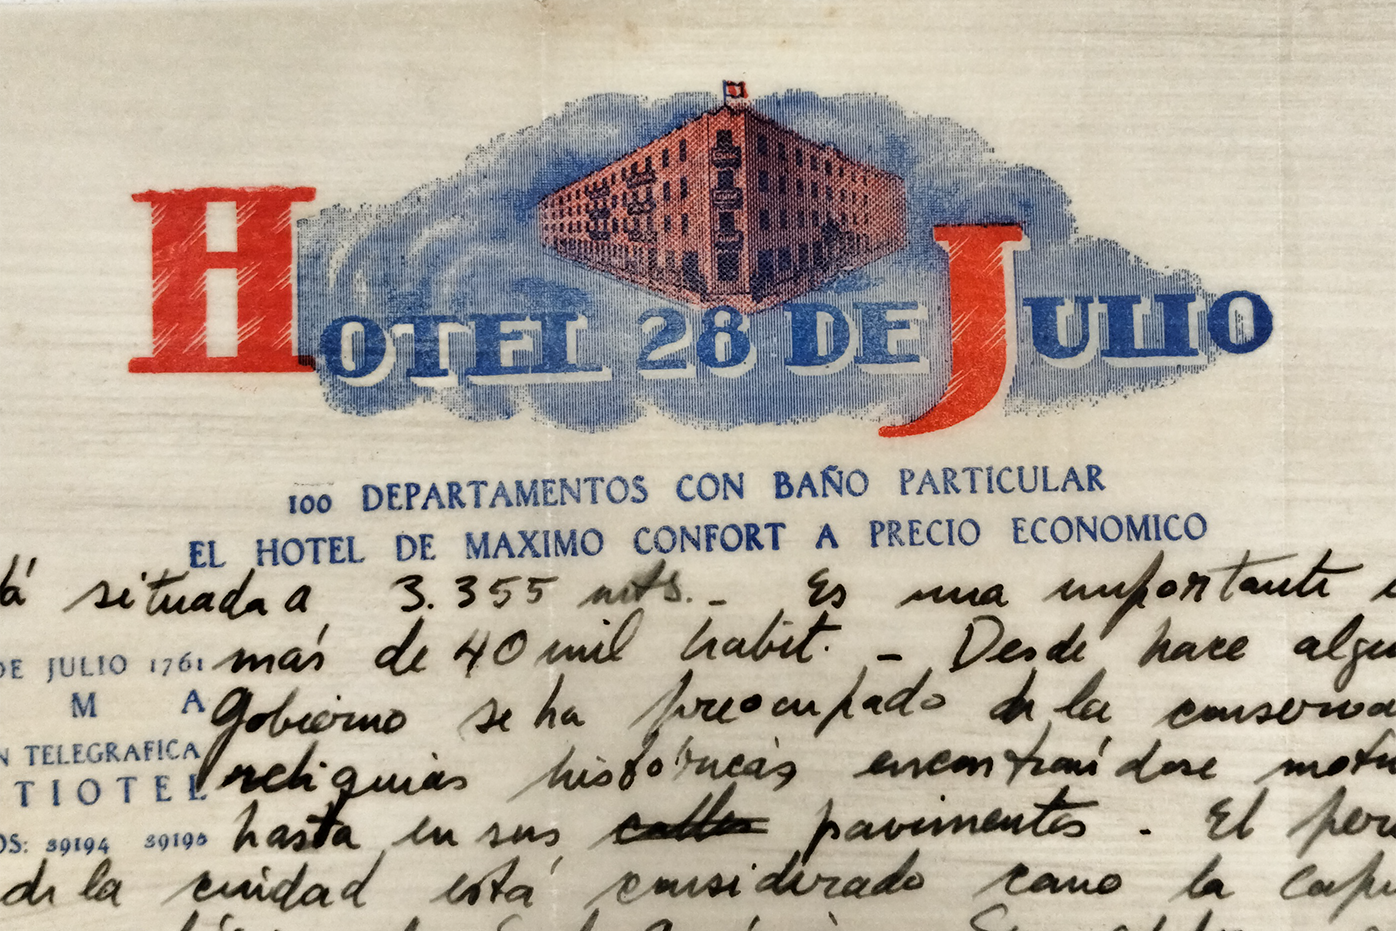 HOTEL 28 DE JULIO
100 DEPARTAMENTOS CON BAÑO PARTICULAR
EL HOTEL DE MAXIMO CONFORT A PRECIO ECONOMICO
tá situada a 3.355 mts. - Es una importante
DE JULIO 1761
más de 40 mil habit. - Desde hace algu
M A
Gobierno se ha preocupado de la conserva
N TELEGRAFICA
reliquias históricas encontraíidose
TIOTEL
hasta en sus calles pavimentos. El per
OS: 39194 39195
de la ciudad está considerado como la Capi